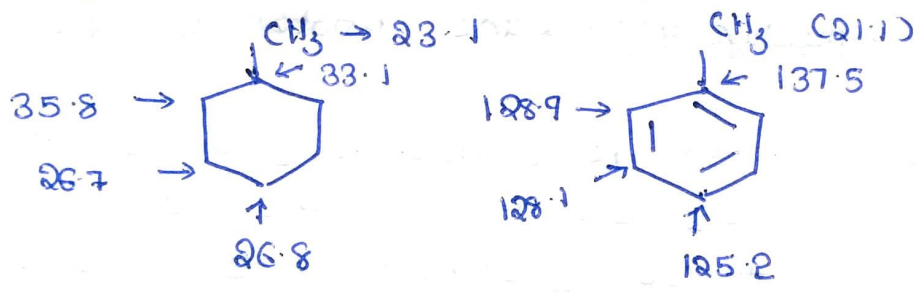 CH₃ → 23.1
33.1
35.8
26.7
26.8
CH₃ (21.1)
137.5
128.9
128.1
125.2